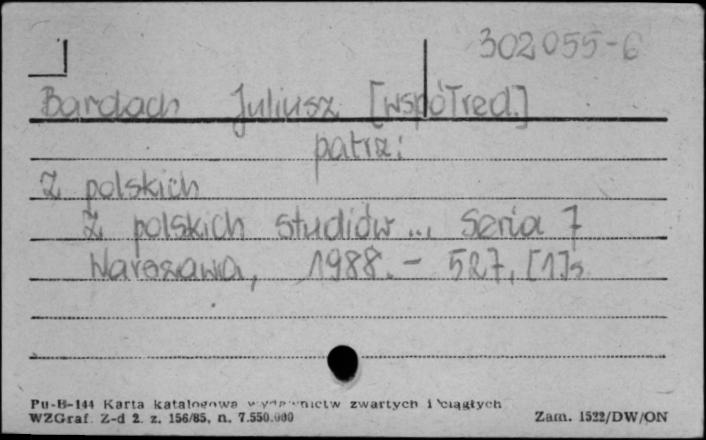 302055-6
Bardach Juliusz [współred.]
patrz:
Z polskich
Z polskich studiów ... Seria 7
Warszawa, 1988. - 527, [1]s
Pu-B-144 Karta katalogowa wydawnictw zwartych i ciągłych
WZGraf. Z-d 2. z. 156/85, n. 7.550.000 Zam. 1522/DW/ON